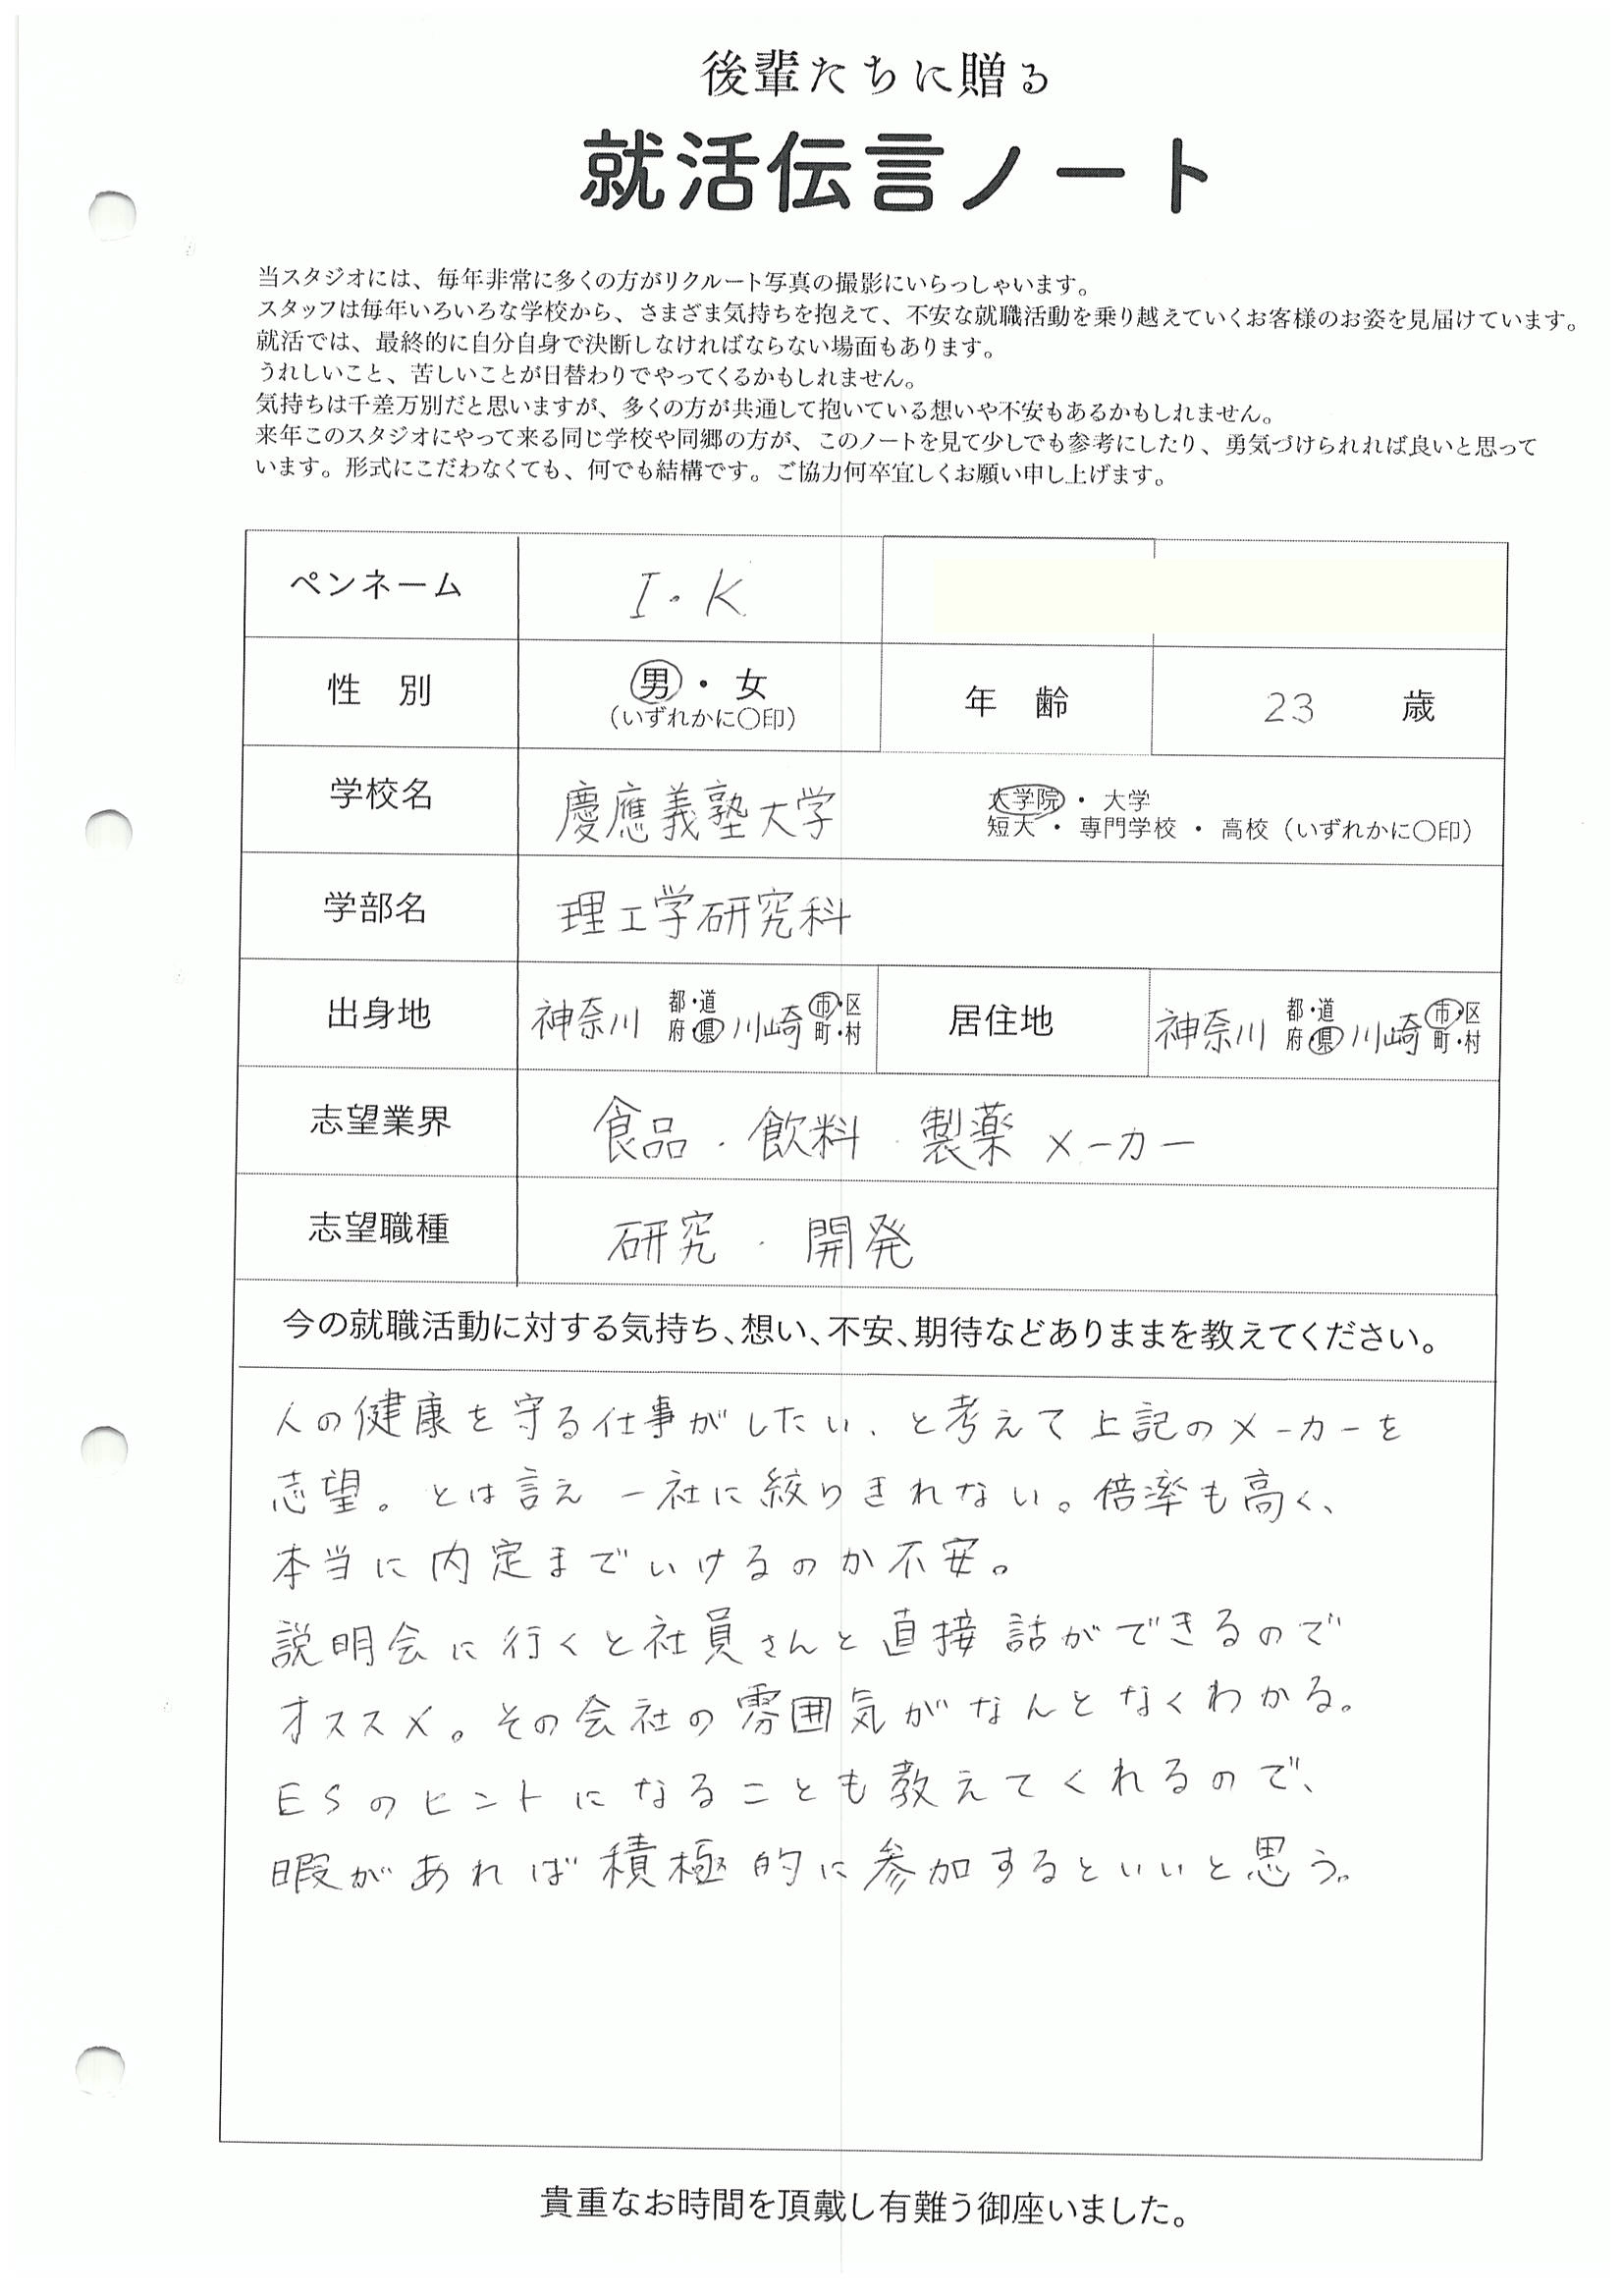 後輩たちに贈る
就活伝言ノート
当スタジオには、毎年非常に多くの方がリクルート写真の撮影にいらっしゃいます。
スタッフは毎年いろいろな学校から、さまざま気持ちを抱えて、不安な就職活動を乗り越えていくお客様のお姿を見届けています。
就活では、最終的に自分自身で決断しなければならない場面もあります。
うれしいこと、苦しいことが日替わりでやってくるかもしれません。
気持ちは千差万別だと思いますが、多くの方が共通して抱いている想いや不安もあるかもしれません。
来年このスタジオにやって来る同じ学校や同郷の方が、このノートを見て少しでも参考にしたり、勇気づけられれば良いと思って
います。形式にこだわなくても、何でも結構です。ご協力何卒宜しくお願い申し上げます。
ペンネーム I・K
性 別 男・女 (いずれかに○印) 年 齢 23 歳
学校名 慶應義塾大学 大学院・大学
短大・専門学校・高校(いずれかに○印)
学部名 理工学研究科
出身地 神奈川 都・道府・県 川崎 市・区町・村 居住地 神奈川 都・道府・県 川崎 市・区町・村
志望業界 食品・飲料・製薬メーカー
志望職種 研究・開発
今の就職活動に対する気持ち、想い、不安、期待などありままを教えてください。
人の健康を守る仕事がしたい、と考えて上記のメーカーを
志望。とは言え一社に絞りきれない。倍率も高く、
本当に内定までいけるのか不安。
説明会に行くと社員さんと直接話ができるので
オススメ。その会社の雰囲気がなんとなくわかる。
ESのヒントになることも教えてくれるので、
暇があれば積極的に参加するといいと思う。
貴重なお時間を頂戴し有難う御座いました。